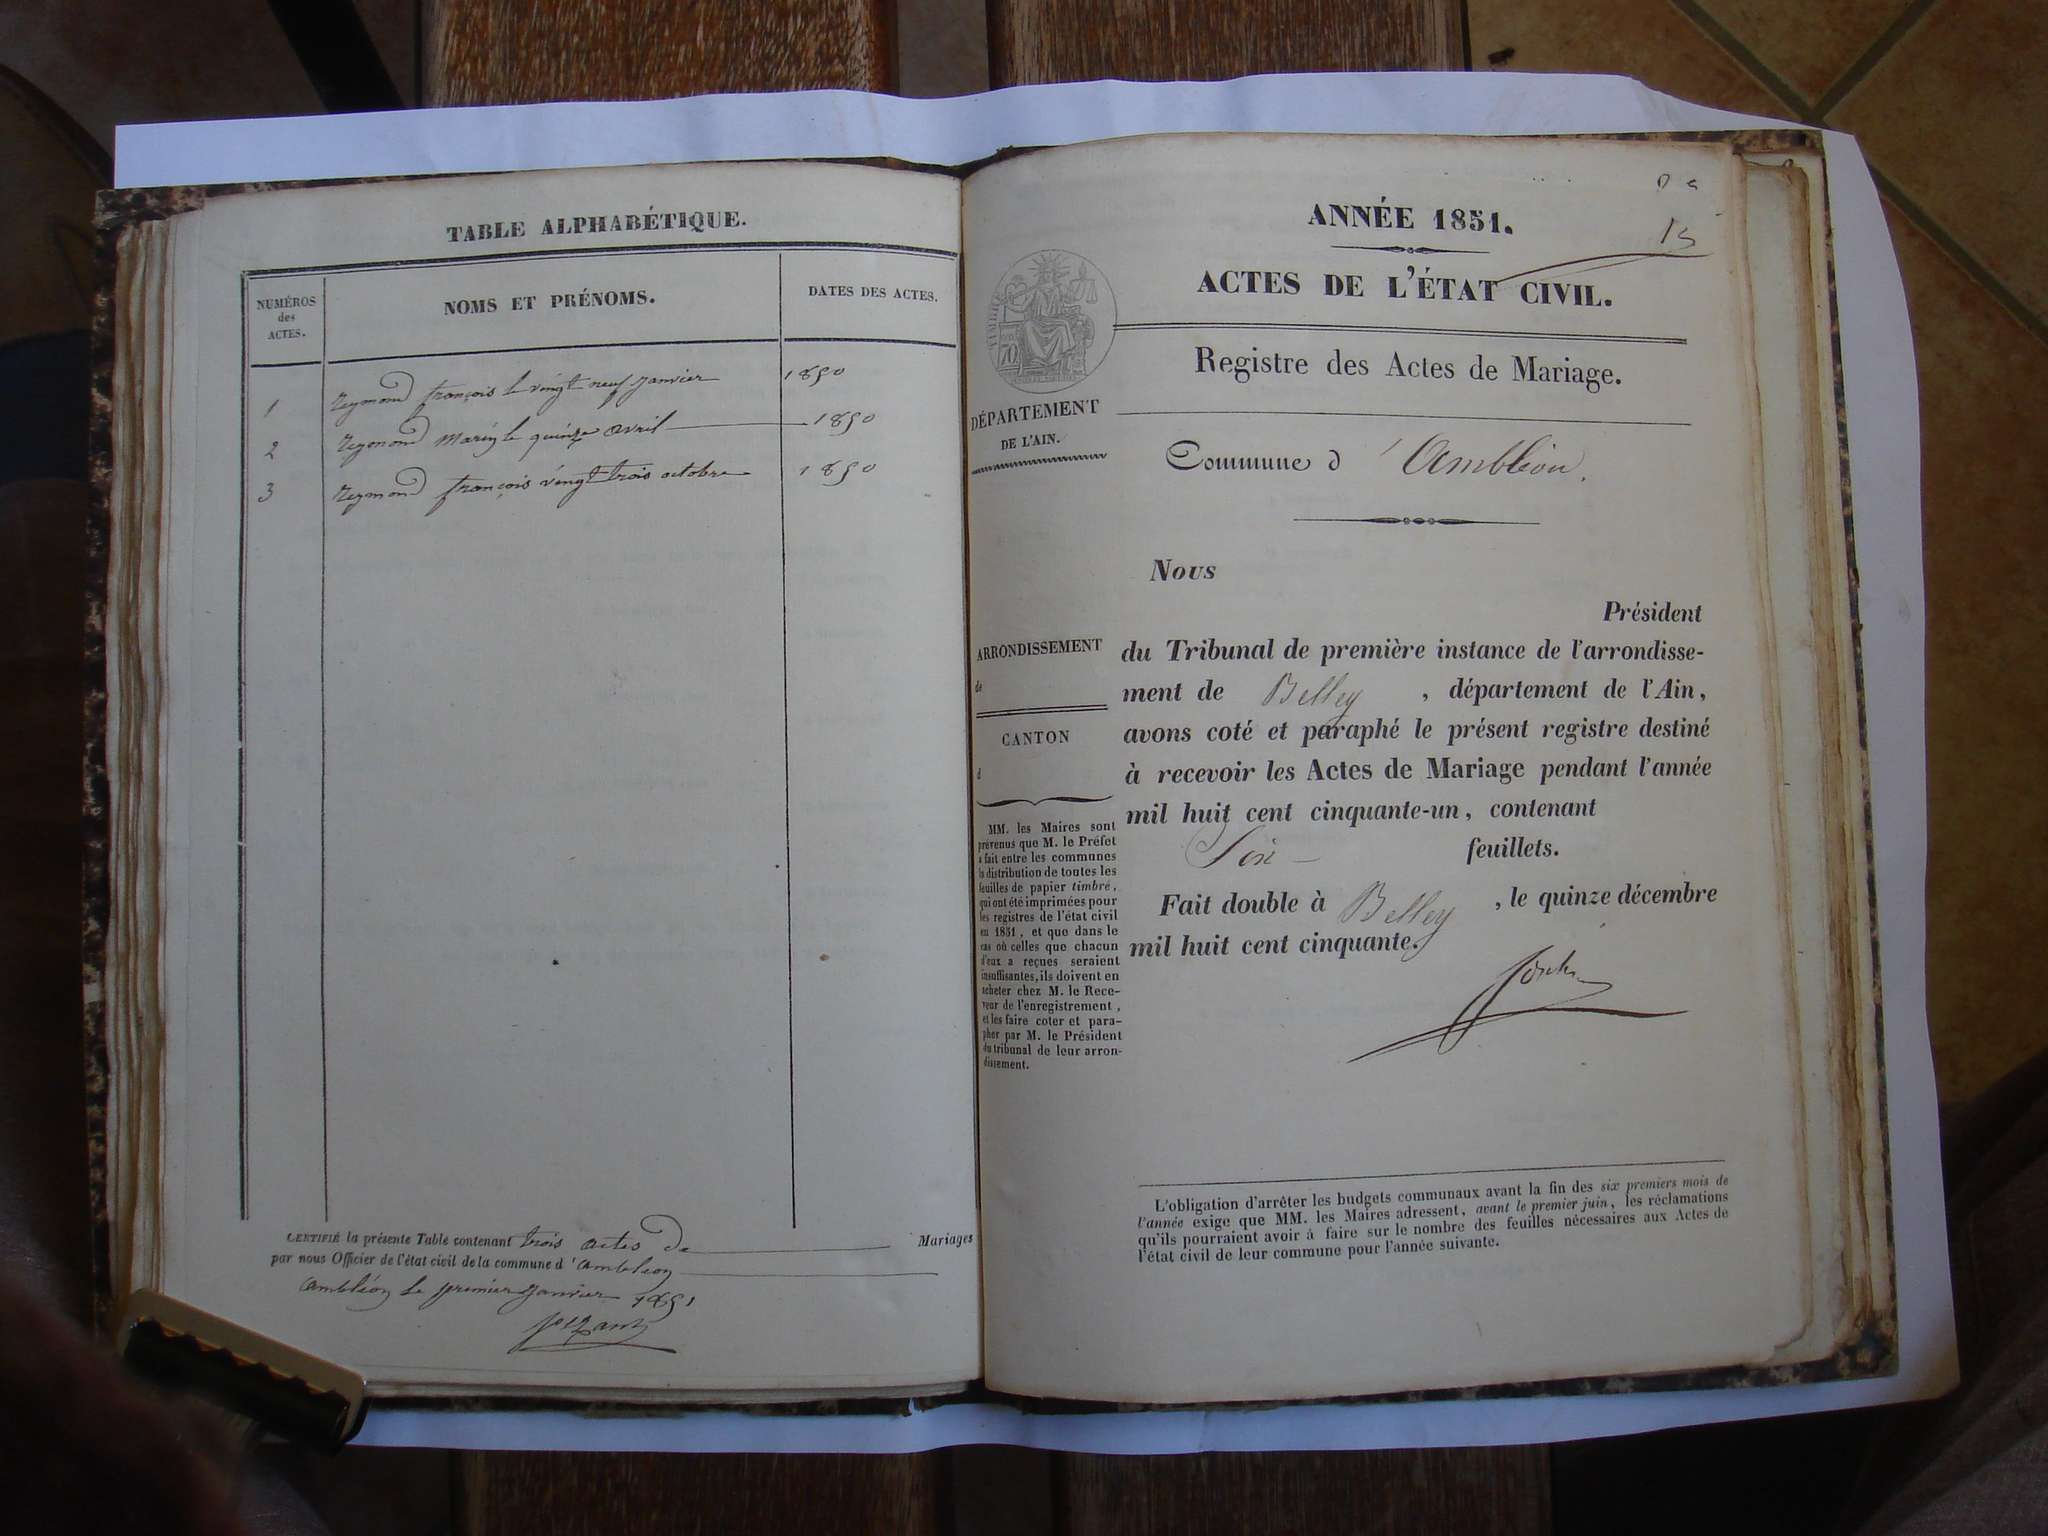 TABLE ALPHABÉTIQUE.
NUMÉROS
des
ACTES.
NOMS ET PRÉNOMS.
DATES DES ACTES.
1 Reymond françois le vingt neuf janvier 1850
2 Reymond le quinze avril 1850
3 Reymond françois vingt trois octobre 1850
CERTIFIÉ la présente Table contenant trois actes de Mariages
par nous Officier de l'état civil de la commune d'ambléon
ambléon le premier janvier 1851
ANNÉE 1851.
15
ACTES DE L'ÉTAT CIVIL.
Registre des Actes de Mariage.
DÉPARTEMENT
DE L'AIN.
Commune d'Ambléon.
Nous
Président
ARRONDISSEMENT
de
CANTON
d
du Tribunal de première instance de l'arrondisse-
ment de Belley, département de l'Ain,
avons coté et paraphé le présent registre destiné
à recevoir les Actes de Mariage pendant l'année
mil huit cent cinquante-un, contenant
Six feuillets.
Fait double à Belley, le quinze décembre
mil huit cent cinquante.
MM. les Maires sont
prévenus que M. le Préfet
a fait entre les communes
la distribution de toutes les
feuilles de papier timbré,
qui ont été imprimées pour
les registres de l'état civil
en 1851, et que dans le
cas où celles que chacun
d'eux a reçues seraient
insuffisantes, ils doivent en
acheter chez M. le Rece-
veur de l'enregistrement,
et les faire coter et para-
pher par M. le Président
du tribunal de leur arron-
dissement.
L'obligation d'arrêter les budgets communaux avant la fin des six premiers mois de
l'année exige que MM. les Maires adressent, avant le premier juin, les réclamations
qu'ils pourraient avoir à faire sur le nombre des feuilles nécessaires aux Actes de
l'état civil de leur commune pour l'année suivante.